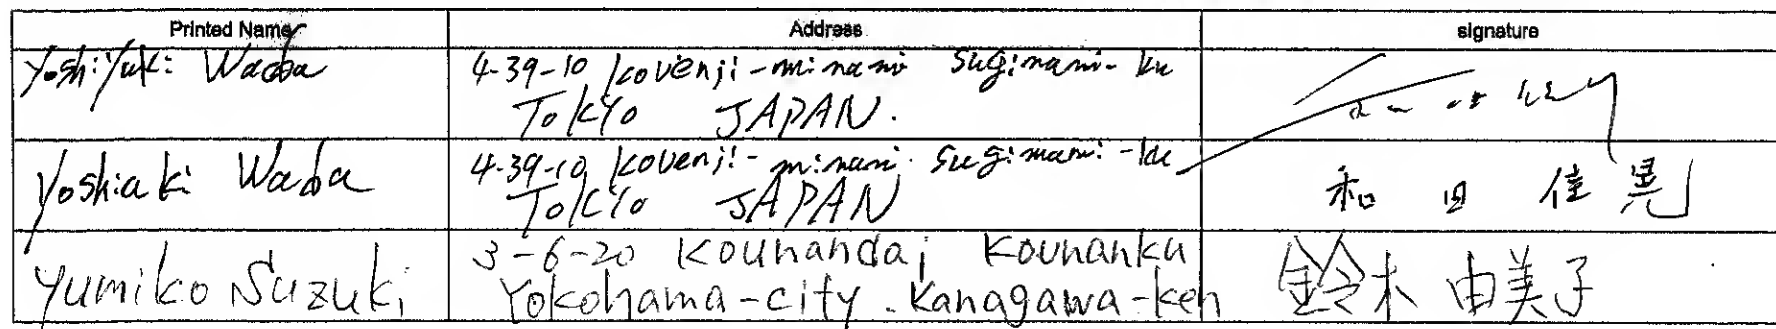 Printed Name Address signature
Yoshiyuki Wada 4-39-10 Kouenji-minami Suginami-ku
TOKYO JAPAN.
Yoshiaki Wada 4-39-10 Kouenji-minami Suginami-ku
TOKYO JAPAN
和田佳晃
Yumiko Suzuki 3-6-20 Kounandai Kounanku
Yokohama-city. Kanagawa-ken
鈴木 由美子